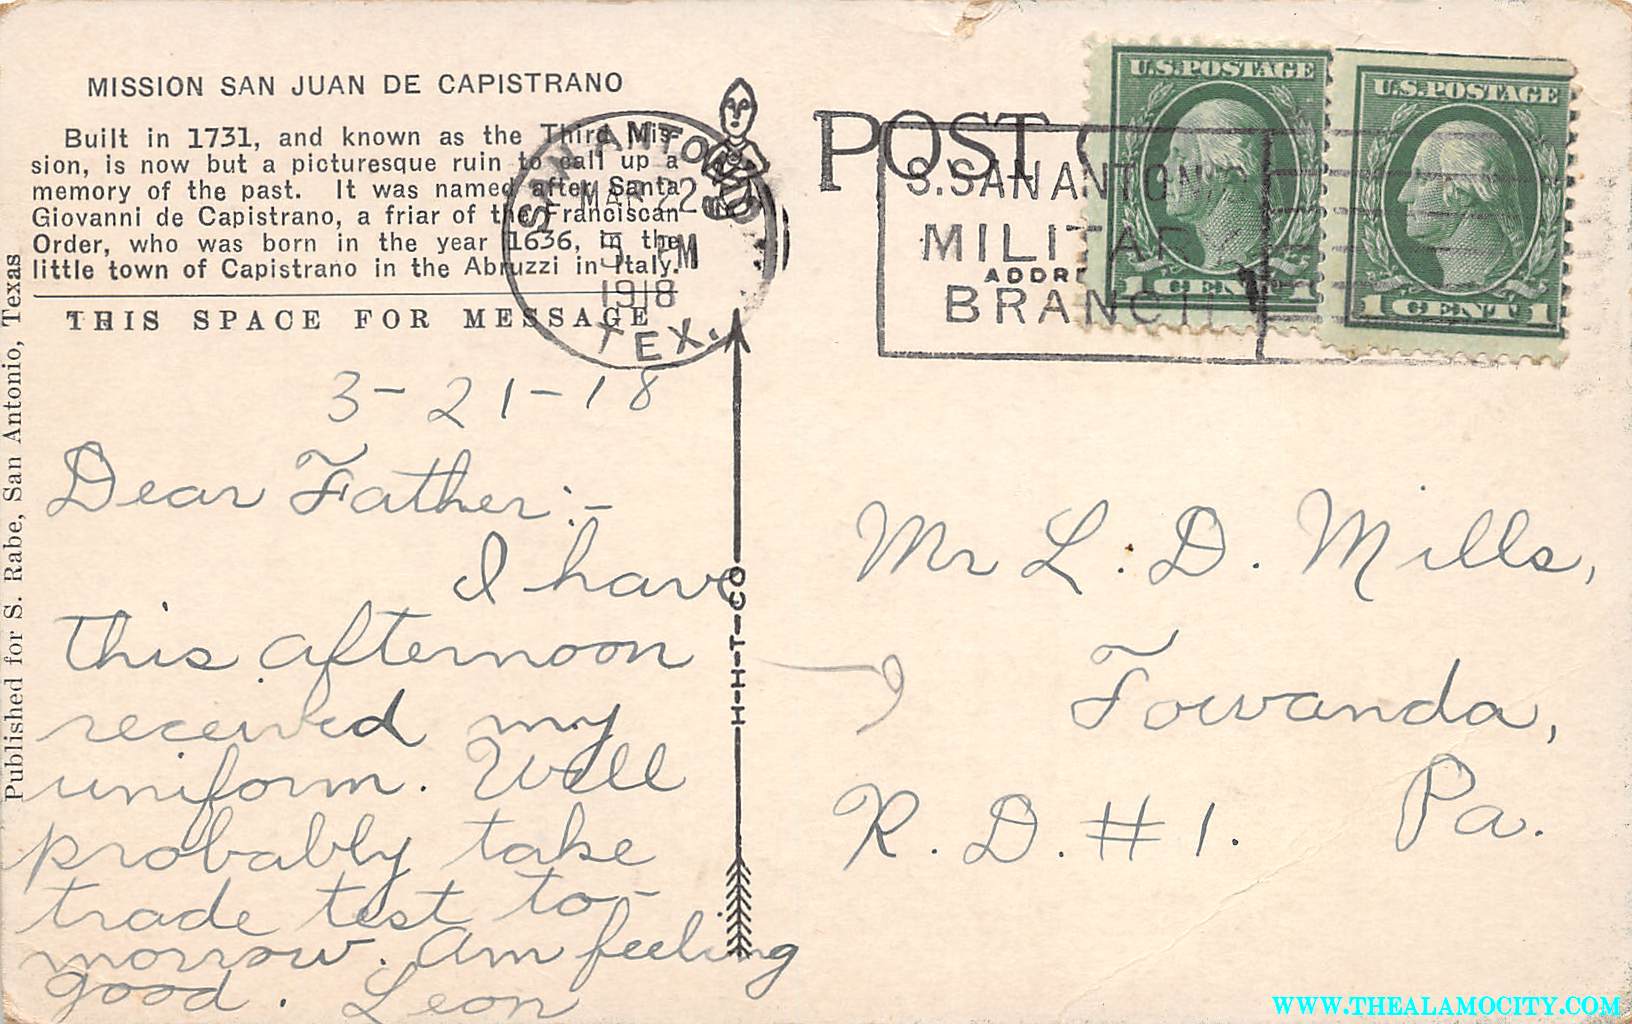 MISSION SAN JUAN DE CAPISTRANO
Built in 1731, and known as the Third Mis-
sion, is now but a picturesque ruin to call up a
memory of the past. It was named after Santa
Giovanni de Capistrano, a friar of the Franciscan
Order, who was born in the year 1636, in the
little town of Capistrano in the Abruzzi in Italy.
THIS SPACE FOR MESSAGE
Published for S. Rabe, San Antonio, Texas
SAN ANTONIO
MAR 22
5 PM
1918
TEX.
3-21-18
Dear Father:-
I have
this afternoon
received my
uniform. Will
probably take
trade test to-
morrow. Am feeling
good. Leon
H-H-T-CO
POST
ADDRE
S. SAN ANTONIO
MILITARY
BRANCH
U.S. POSTAGE
1 CENT 1
U.S. POSTAGE
1 CENT 1
Mr L. D. Mills,
Towanda,
Pa.
R. D. #1.
WWW.THEALAMOCITY.COM